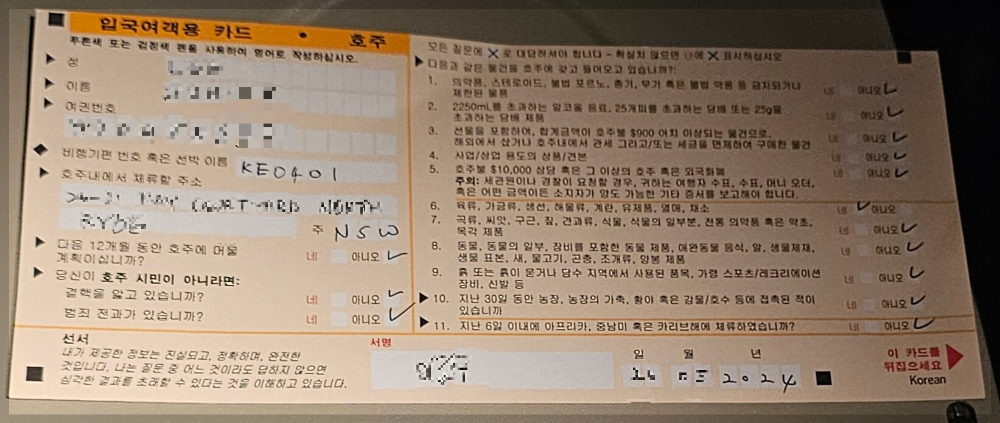 입국여객용 카드 • 호주
푸른색 또는 검정색 펜을 사용하여 영어로 작성하십시오.
성
이름
여권번호
비행기편 번호 혹은 선박 이름
KE0401
호주내에서 체류할 주소
COURTYARD NORTH
RYDE 주 NSW
다음 12개월 동안 호주에 머물
계획이십니까? 네 아니오
당신이 호주 시민이 아니라면:
결핵을 앓고 있습니까? 네 아니오
범죄 전과가 있습니까? 네 아니오
모든 질문에 X로 대답하셔야 합니다 - 확실치 않으면 네에 X 표시하십시오
다음과 같은 물건을 호주에 갖고 들어오고 있습니까?:
1. 의약품, 스테로이드, 불법 포르노, 총기, 무기 혹은 불법 약물 등 금지되거나
제한된 물품 네 아니오
2. 2250mL를 초과하는 알코올 음료, 25개피를 초과하는 담배 또는 25g을
초과하는 담배 제품 네 아니오
3. 선물을 포함하여, 합계금액이 호주불 $900 어치 이상되는 물건으로,
해외에서 샀거나 호주내에서 관세 그리고/또는 세금을 면제하여 구매한 물건 네 아니오
4. 사업/상업 용도의 상품/견본 네 아니오
5. 호주불 $10,000 상당 혹은 그 이상의 호주 혹은 외국화폐 네 아니오
주의: 세관원이나 경찰이 요청할 경우, 귀하는 여행자 수표, 수표, 머니 오더,
혹은 어떤 금액이든 소지자가 양도 가능한 기타 증서를 보고해야 합니다.
6. 육류, 가금류, 생선, 해물류, 계란, 유제품, 열매, 채소 네 아니오
7. 곡류, 씨앗, 구근, 짚, 견과류, 식물, 식물의 일부분, 전통 의약품 혹은 약초,
목각 제품 네 아니오
8. 동물, 동물의 일부, 장비를 포함한 동물 제품, 애완동물 음식, 알, 생물제재,
생물 표본, 새, 물고기, 곤충, 조개류, 양봉 제품 네 아니오
9. 흙 또는 흙이 묻거나 담수 지역에서 사용된 품목, 가령 스포츠/레크리에이션
장비, 신발 등 네 아니오
10. 지난 30일 동안 농장, 농장의 가축, 황야 혹은 강물/호수 등에 접촉된 적이
있습니까 네 아니오
11. 지난 6일 이내에 아프리카, 중남미 혹은 카리브해에 체류하였습니까? 네 아니오
선서
내가 제공한 정보는 진실되고, 정확하며, 완전한
것입니다. 나는 질문 중 어느 것이라도 답하지 않으면
심각한 결과를 초래할 수 있다는 것을 이해하고 있습니다.
서명
일 월 년
2024
이 카드를
뒤집으세요
Korean